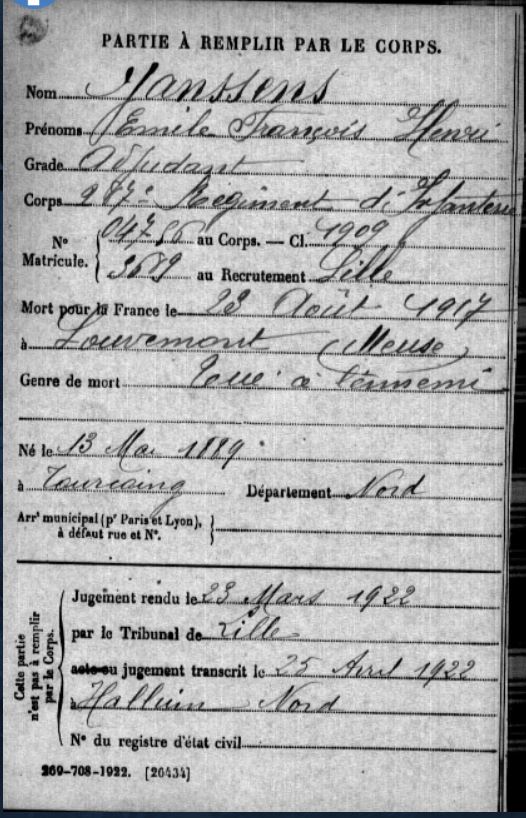 PARTIE À REMPLIR PAR LE CORPS.
Nom Janssens
Prénoms Emile François Henri
Grade Adjudant
Corps 287e Régiment d'Infanterie
N° Matricule. { 04756 au Corps. — Cl. 1909
3689 au Recrutement Lille
Mort pour la France le 28 Août 1917
à Louvemont (Meuse)
Genre de mort Tué à l'ennemi
Né le 13 Mai 1889
à Tourcoing Département Nord
Arrt municipal (pr Paris et Lyon),
à défaut rue et N°.
Cette partie n'est pas à remplir par le Corps.
Jugement rendu le 23 Mars 1922
par le Tribunal de Lille
acte ou jugement transcrit le 25 Avril 1922
à Halluin Nord
N° du registre d'état civil
269-708-1922. [26434]